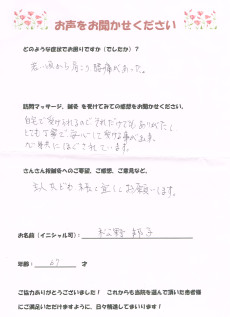 お声をお聞かせください
どのような症状でお困りですか(でしたか)?
若い頃から肩こり 腰痛があった。
訪問マッサージ、鍼灸 を受けてみての感想をお聞かせください。
自宅で受けられるのでそれだけでもありがたく
とても丁寧で安心して受ける事が出来
心身共にほぐされています。
さんさん治鍼灸へのご要望、ご感想、ご意見など、
主人ともども 末長く宜しくお願いします。
お名前(イニシャル可):
年齢: 67 才
ご協力ありがとうございました! これからも当院を選んで頂いた患者様
にご満足いただけますように、日々精進してまいります!